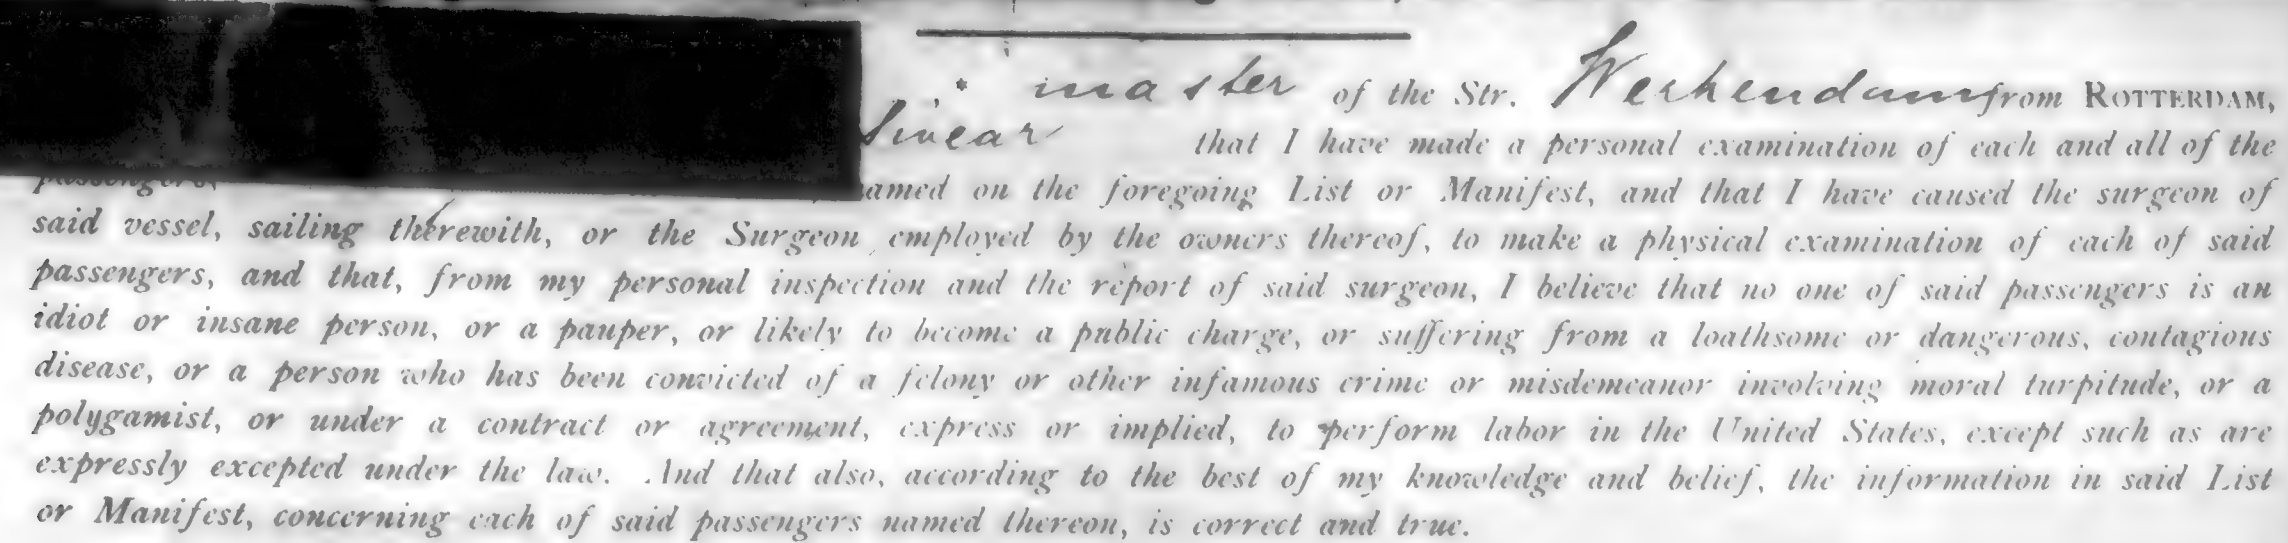 master of the Str. Werkendam from ROTTERDAM,
swear that I have made a personal examination of each and all of the
passengers, named on the foregoing List or Manifest, and that I have caused the surgeon of
said vessel, sailing therewith, or the Surgeon employed by the owners thereof, to make a physical examination of each of said
passengers, and that, from my personal inspection and the report of said surgeon, I believe that no one of said passengers is an
idiot or insane person, or a pauper, or likely to become a public charge, or suffering from a loathsome or dangerous, contagious
disease, or a person who has been convicted of a felony or other infamous crime or misdemeanor involving moral turpitude, or a
polygamist, or under a contract or agreement, express or implied, to perform labor in the United States, except such as are
expressly excepted under the law. And that also, according to the best of my knowledge and belief, the information in said List
or Manifest, concerning each of said passengers named thereon, is correct and true.